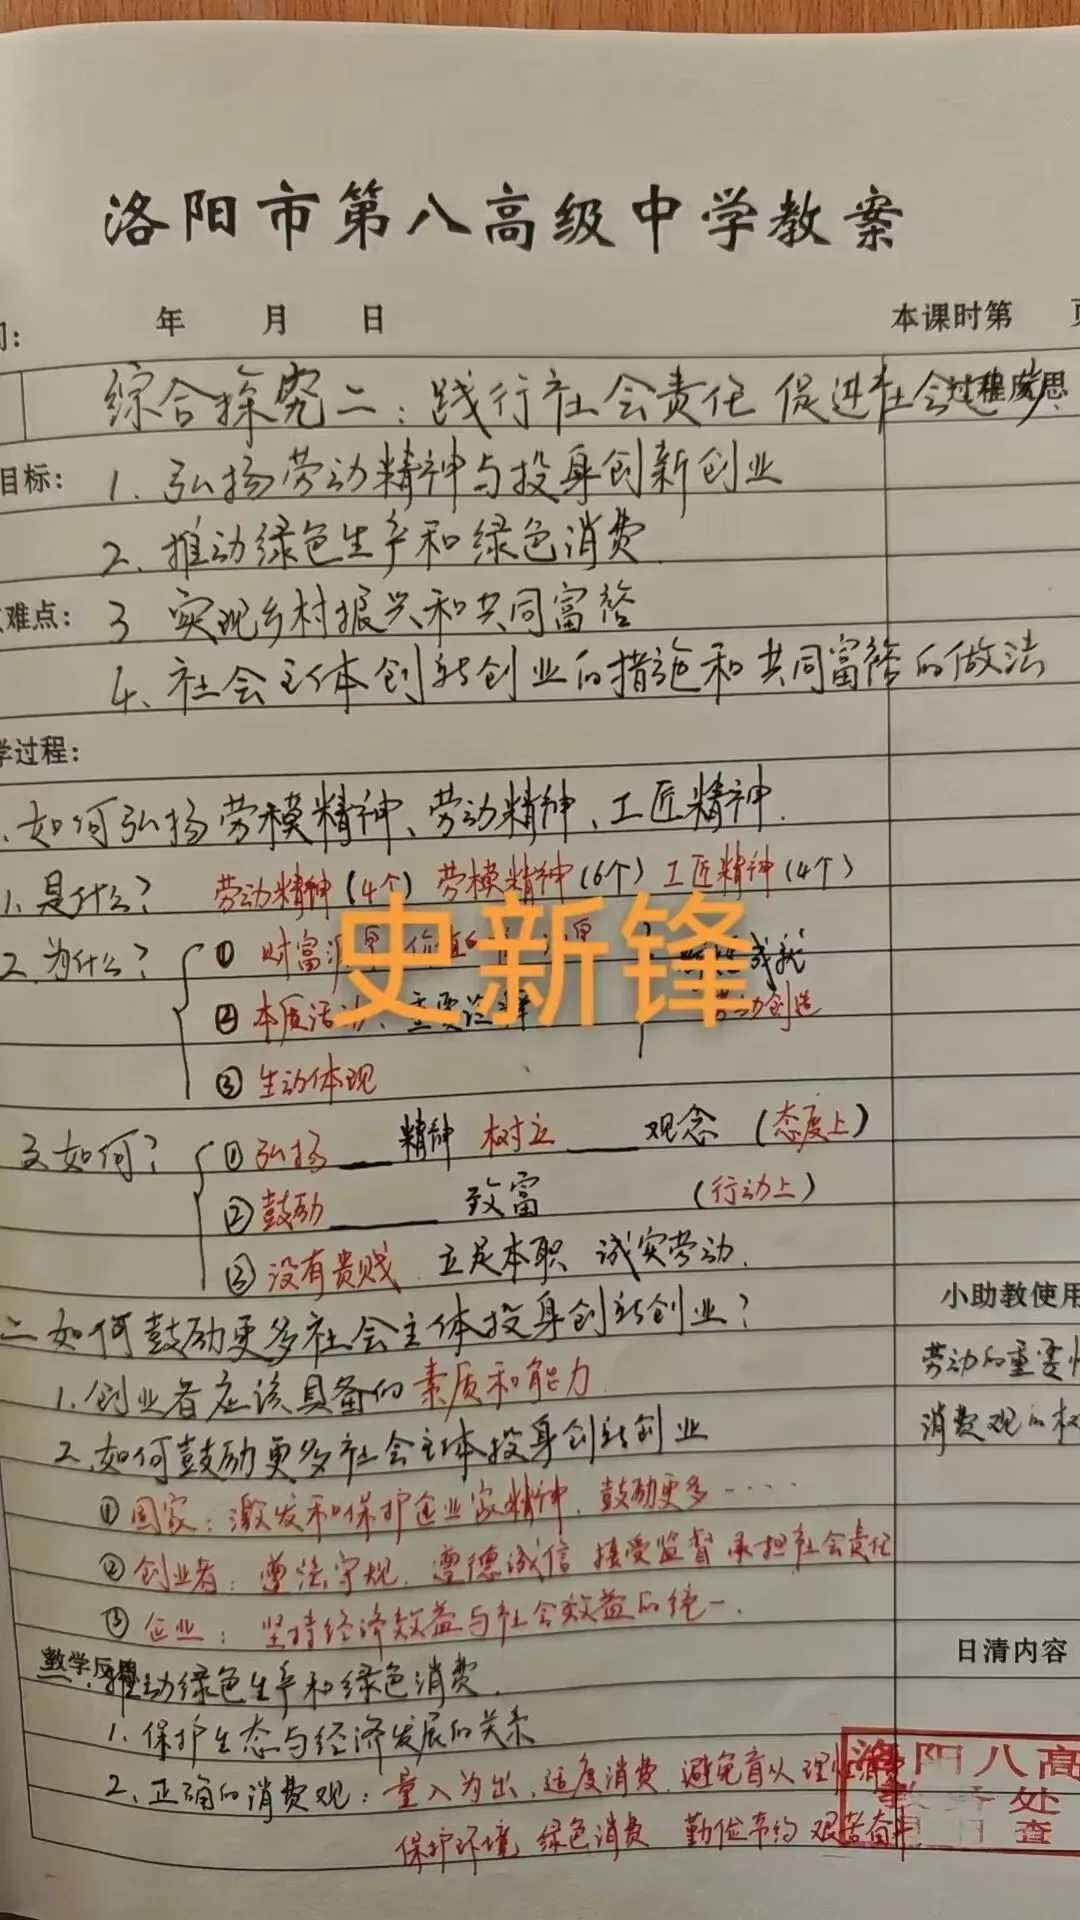 洛阳市第八高级中学教案
年 月 日 本课时第
综合探究二:践行社会责任 促进社会进步 过程反思
目标: 1. 弘扬劳动精神与投身创新创业
2. 推动绿色生产和绿色消费
难点: 3 实现乡村振兴和共同富裕
4. 社会主体创新创业的措施和共同富裕的做法
学过程:
如何弘扬劳模精神、劳动精神、工匠精神.
1. 是什么? 劳动精神(4个) 劳模精神(6个) 工匠精神(4个)
2. 为什么? ① 财富源
史新锋
成就
② 本质活动、重要途 劳动创造
③ 生动体现
3 如何? ① 弘扬___精神 树立___观念 (态度上)
② 鼓励___致富 (行动上)
③ 没有贵贱 立足本职 诚实劳动.
小助教使用
二 如何鼓励更多社会主体投身创新创业?
劳动的重要
1. 创业者应该具备的素质和能力.
消费观的
2. 如何鼓励更多社会主体投身创新创业
① 国家: 激发和保护企业家精神, 鼓励更多……
② 创业者: 遵法守规, 遵德诚信 接受监督 承担社会责任
③ 企业: 坚持经济效益与社会效益的统一.
日清内容
教学反思
三. 推动绿色生产和绿色消费.
1. 保护生态与经济发展的关系
2. 正确的消费观: 量入为出, 适度消费. 避免盲从 理性消费
保护环境, 绿色消费 勤俭节约 艰苦奋斗
洛阳八高
教务处
查